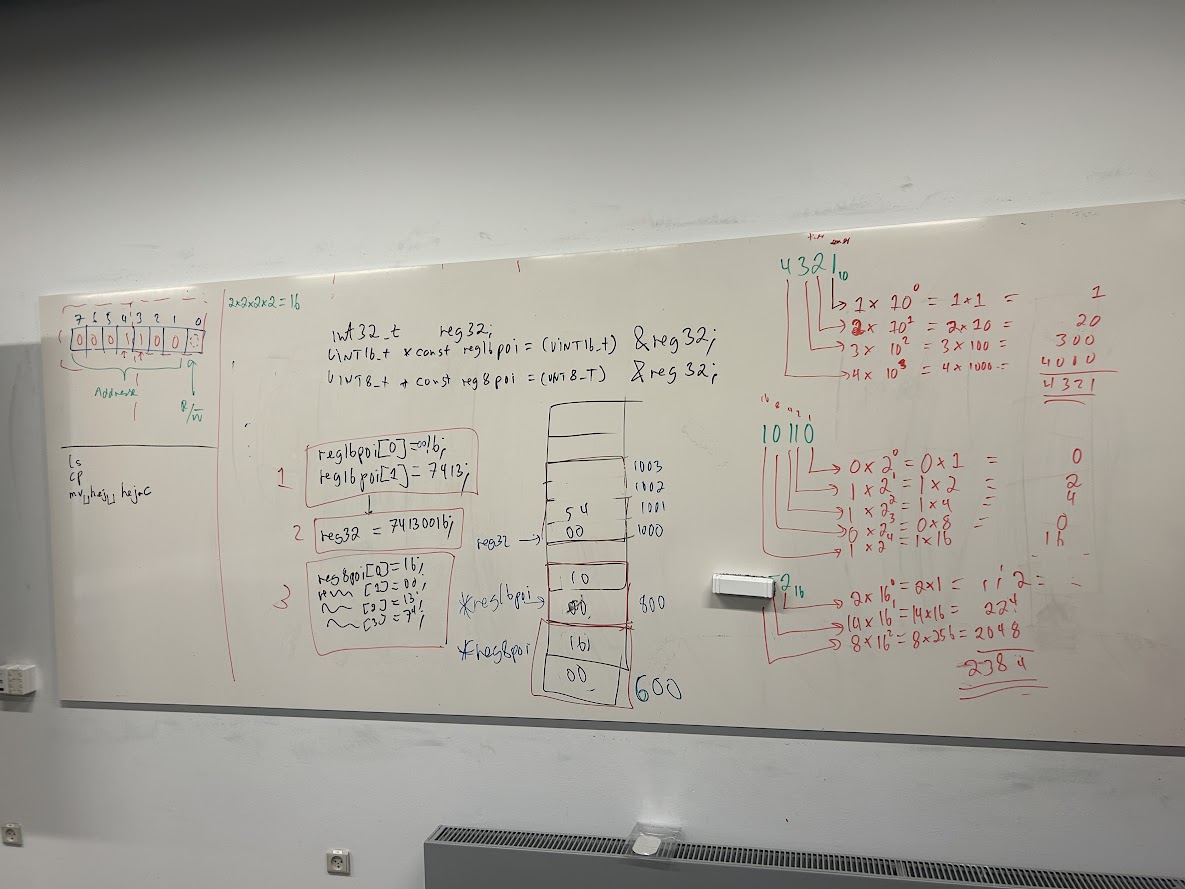 7 6 5 4 3 2 1 0
0 0 0 1 1 0 0
Address
R/W
ls
cp
mv␣hej␣hej.c
2×2×2×2=16
int32_t reg32;
UINT16_t * const reg16poi = (UINT16_t) &reg32;
UINT8_t * const reg8poi = (UNT8_T) &reg32;
1
reg16poi[0]=0016;
reg16poi[1]=7413;
2
reg32 = 74130016;
3
reg8poi[0]=16;
[1]=00;
[2]=13;
[3]=74;
1003
1002
54 1001
reg32 → 00 1000
10
*reg16poi → 800
*reg8poi 16
00 600
4321₁₀
1 × 10⁰ = 1×1 = 1
2 × 10¹ = 2×10 = 20
3 × 10² = 3×100 = 300
4 × 10³ = 4×1000 = 4000
4321
16 8 4 2 1
10110
0×2⁰ = 0×1 = 0
1×2¹ = 1×2 = 2
1×2² = 1×4 = 4
0×2³ = 0×8 = 0
1×2⁴ = 1×16 16
2₁₆
2×16⁰ = 2×1 = 2
14×16¹ = 14×16 = 224
8×16² = 8×256 = 2048
2384